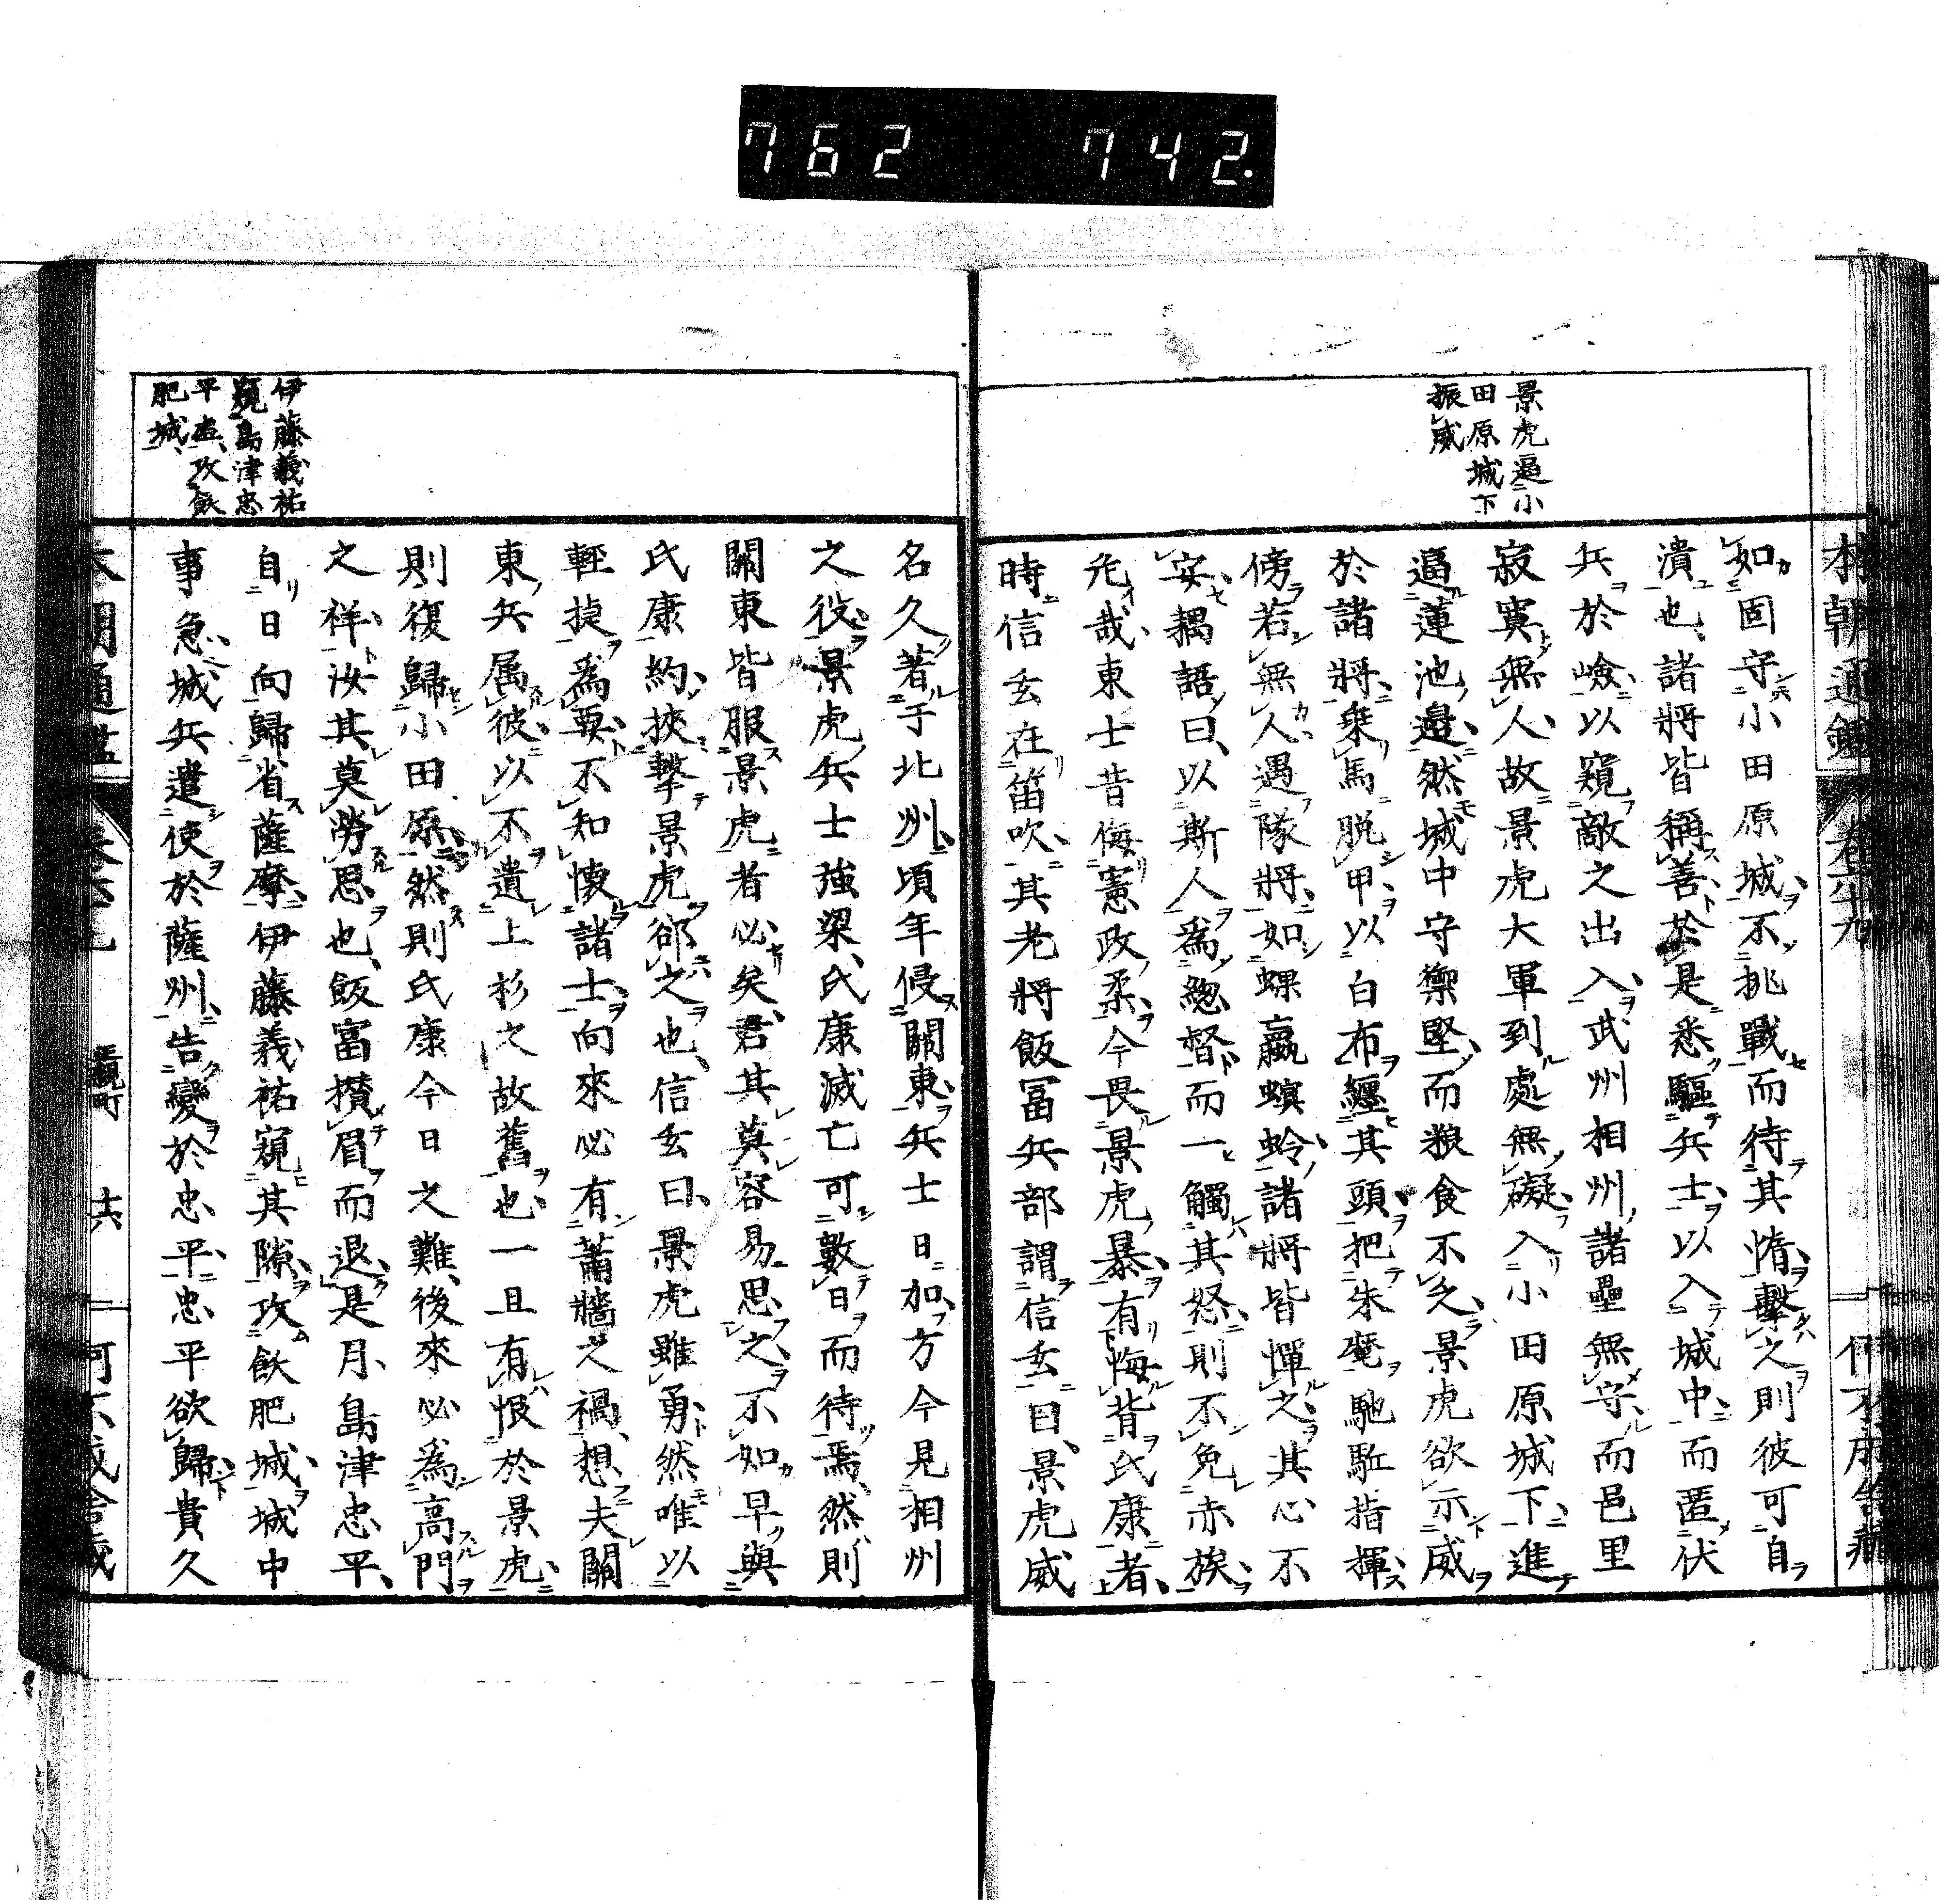 762 742.
景虎逼小
田原城下
振威
本朝通鑑 卷六十九
如固守小田原城不挑戰而待其惰擊之則彼可自
潰也諸將皆稱善於是悉驅兵士以入城中而匿伏
兵於嶮以窺敵之出入武州相州諸壘無守而邑里
寂寞無人故景虎大軍到處無礙入小田原城下進
逼蓮池邉然城中守禦堅而粮食不乏景虎欲示威
於諸將乗馬脱甲以白布纏其頭把朱麾馳駈指揮
傍若無人遇隊將如螺蠃螟蛉諸將皆憚之其心不
安耦語曰以斯人爲總督而一觸其怒則不免赤族
危哉東士昔侮憲政柔今畏景虎暴有悔背氏康者
時信玄在笛吹其老將飯冨兵部謂信玄曰景虎威
名久著于北州頃年侵關東兵士日加方今見相州
之役景虎兵士強梁氏康滅亡可數日而待焉然則
關東皆服景虎者必矣君其莫容易思之不如早與
氏康約挾擊景虎郤之也信玄曰景虎雖勇然唯以
輕捷爲要不知懐諸士向來必有蕭牆之禍想夫關
東兵属彼以不遺上杉之故舊也一且有恨於景虎
則復歸小田原然則氏康今日之難後來必爲高門
之祥汝其莫勞思也飯富攅眉而退是月島津忠平
自日向歸省薩摩伊藤義祐窺其隙攻飫肥城城中
事急城兵遣使於薩州告變於忠平忠平欲歸貴久
伊藤義祐
窺島津忠
平虚攻飫
肥城
十六